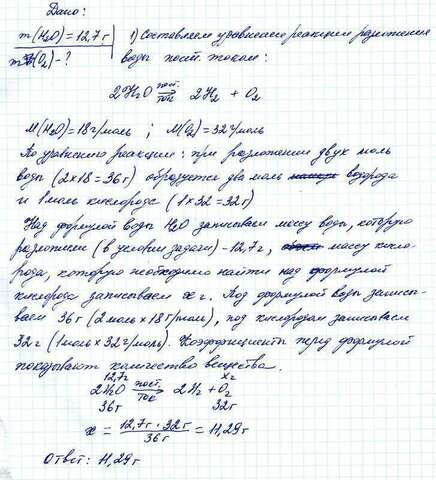 Дано:
m(H₂O) = 12,7 г
m(O₂) - ?
1) Составляем уравнение реакции разложения
воды пост. током:
2H₂O пост. ток → 2H₂ + O₂
M(H₂O) = 18 г/моль ; M(O₂) = 32 г/моль
По уравнению реакции: при разложении двух моль
воды (2×18=36г) образуется два моль водорода
и 1 моль кислорода (1×32=32г)
Над формулой воды H₂O записываем массу воды, которую
разложили (в условии задачи) - 12,7 г, массу кисло-
рода, которую необходимо найти над формулой
кислорода записываем x г. Под формулой воды записы-
ваем 36 г (2 моль × 18 г/моль), под кислородом записываем
32 г (1 моль × 32 г/моль). Коэффициенты перед формулой
показывают количество вещества.
12,7г xг
2H₂O пост. ток → 2H₂ + O₂
36г 32г
x = 12,7г · 32г / 36г = 11,29 г
Ответ: 11,29 г